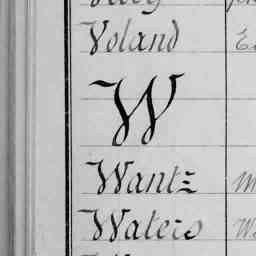 Voland
W
Wantz
Waters